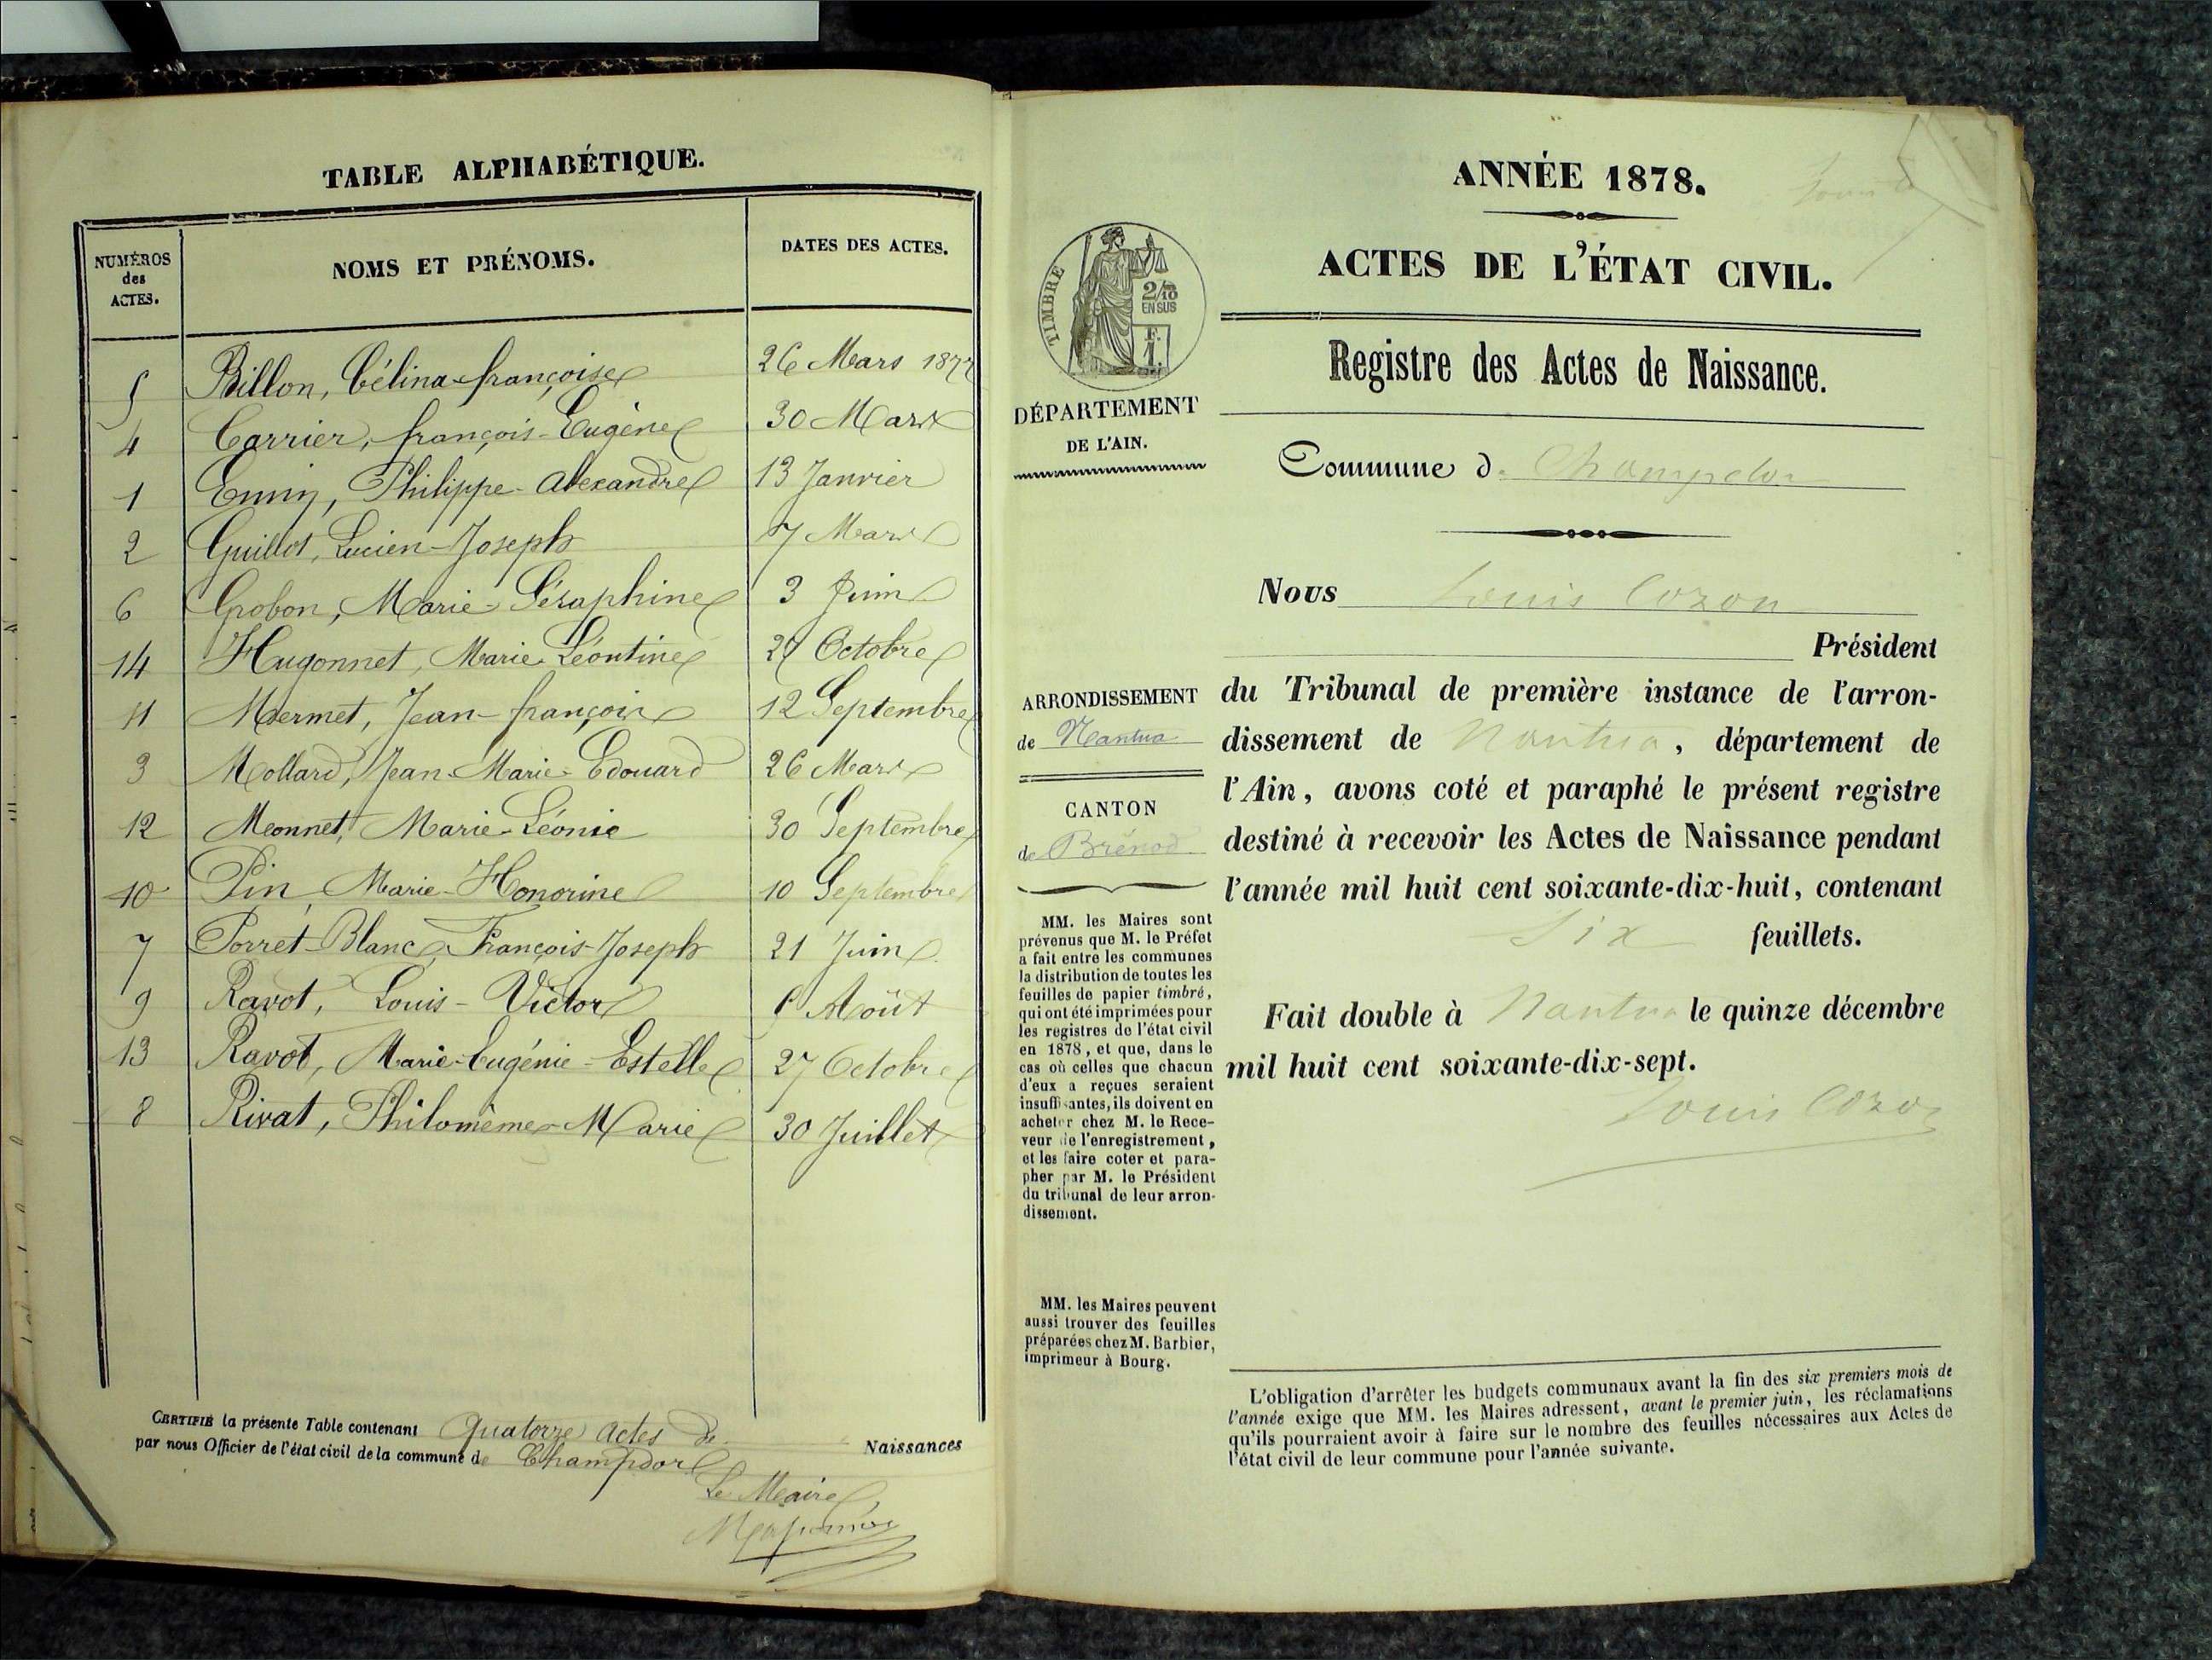 TABLE ALPHABÉTIQUE.
NUMÉROS des ACTES.
NOMS ET PRÉNOMS.
DATES DES ACTES.
5 Billon, Célina françoise 26 Mars 1877
4 Carrier, françois-Eugène 30 Mars
1 Emin, Philippe-Alexandre 13 Janvier
2 Guillot, Lucien-Joseph 7 Mars
6 Grobon, Marie-Séraphine 3 Juin
14 Hugonnet, Marie Léontine Octobre
11 Mermet, Jean-françois 12 Septembre
3 Mollard, Jean-Marie-Edouard 26 Mars
12 Monnet, Marie-Léonie 30 Septembre
10 Pin, Marie-Honorine 10 Septembre
7 Porret-Blanc, François-Joseph 21 Juin
9 Ravot, Louis-Victor Août
13 Ravot, Marie-Eugénie-Estelle 27 Octobre
8 Rivat, Philomène-Marie 30 Juillet
CERTIFIÉ la présente Table contenant quatorze actes de Naissances
par nous Officier de l'état civil de la commune de Champdor
Le Maire
ANNÉE 1878.
ACTES DE L'ÉTAT CIVIL.
TIMBRE
2/10
EN SUS
F.
1.
Registre des Actes de Naissance.
DÉPARTEMENT
DE L'AIN.
Commune de Champdor
Nous Louis Cozon
Président
du Tribunal de première instance de l'arron-
dissement de Nantua, département de
l'Ain, avons coté et paraphé le présent registre
destiné à recevoir les Actes de Naissance pendant
l'année mil huit cent soixante-dix-huit, contenant
Six feuillets.
Fait double à Nantua le quinze décembre
mil huit cent soixante-dix-sept.
Louis Cozon
ARRONDISSEMENT
de Nantua
CANTON
de Brénod
MM. les Maires sont
prévenus que M. le Préfet
a fait entre les communes
la distribution de toutes les
feuilles de papier timbré,
qui ont été imprimées pour
les registres de l'état civil
en 1878, et que, dans le
cas où celles que chacun
d'eux a reçues seraient
insuffisantes, ils doivent en
acheter chez M. le Rece-
veur de l'enregistrement,
et les faire coter et para-
pher par M. le Président
du tribunal de leur arron-
dissement.
MM. les Maires peuvent
aussi trouver des feuilles
préparées chez M. Barbier,
imprimeur à Bourg.
L'obligation d'arrêter les budgets communaux avant la fin des six premiers mois de
l'année exige que MM. les Maires adressent, avant le premier juin, les réclamations
qu'ils pourraient avoir à faire sur le nombre des feuilles nécessaires aux Actes de
l'état civil de leur commune pour l'année suivante.